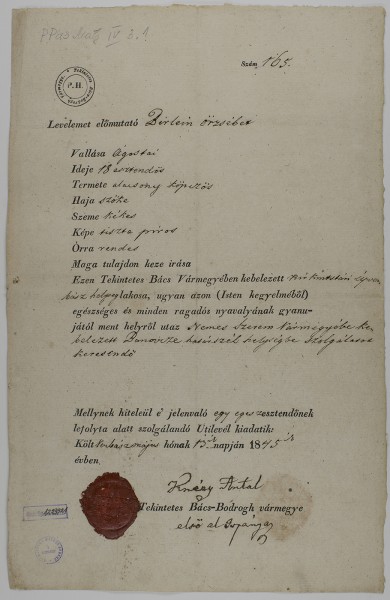 Szám 165.
P.H.
Levelemet előmutató Dirlein Örzsébet
Vallása Agostai
Ideje 18 esztendős
Termete alacsony köpczös
Haja szőke
Szeme kékes
Képe tiszta piros
Orra rendes
Maga tulajdon keze írása
Ezen Tekintetes Bács Vármegyében kebelezett
lakosa, ugyan azon (Isten kegyelméből)
egészséges és minden ragadós nyavalyának gyanu-
jától ment helyről utaz Nemes Szerem Vármegyébe Ke
belezett helységbe Szolgálatot
keresendő
Mellynek hiteléül e' jelenvaló egy egész esztendőnek
lefolyta alatt szolgálandó Utilevél kiadatik:
Költ hónak 15 napján 1845
évben.
Antal
Tekintetes Bács-Bodrogh vármegye
első al